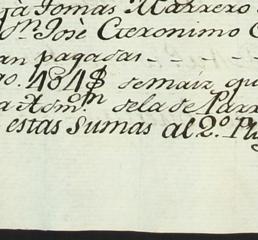 jà Tomas Marrero
dⁿ. Josè Geronimo
an pagadas - - - -
go. 4848 de maiz, qu
a Admᵒⁿ. de la de Parr
estas Sumas al 2.º Pl